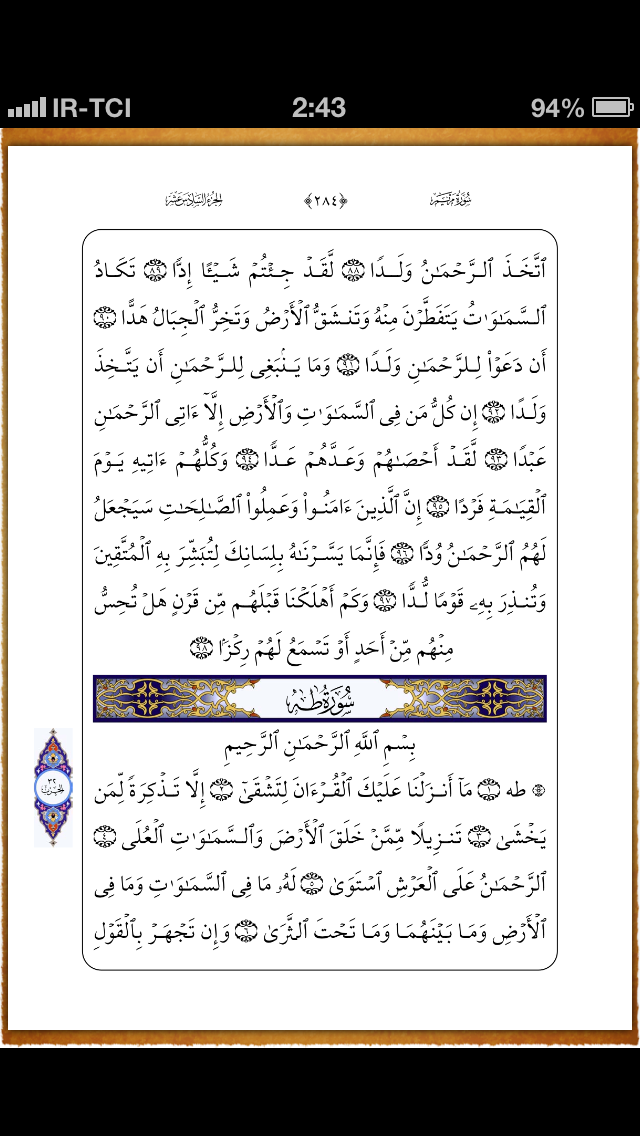 IR-TCI 2:43 94%
سُورَةُ مَرْيَم ﴿٢٨٤﴾ الجُزْءُ السَّادِسَ عَشَرَ
ٱتَّخَذَ ٱلرَّحْمَـٰنُ وَلَدًا ﴿٨٨﴾ لَّقَدْ جِئْتُمْ شَيْـًٔا إِدًّا ﴿٨٩﴾ تَكَادُ
ٱلسَّمَـٰوَٰتُ يَتَفَطَّرْنَ مِنْهُ وَتَنشَقُّ ٱلْأَرْضُ وَتَخِرُّ ٱلْجِبَالُ هَدًّا ﴿٩٠﴾
أَن دَعَوْا۟ لِلرَّحْمَـٰنِ وَلَدًا ﴿٩١﴾ وَمَا يَنۢبَغِى لِلرَّحْمَـٰنِ أَن يَتَّخِذَ
وَلَدًا ﴿٩٢﴾ إِن كُلُّ مَن فِى ٱلسَّمَـٰوَٰتِ وَٱلْأَرْضِ إِلَّآ ءَاتِى ٱلرَّحْمَـٰنِ
عَبْدًا ﴿٩٣﴾ لَّقَدْ أَحْصَىٰهُمْ وَعَدَّهُمْ عَدًّا ﴿٩٤﴾ وَكُلُّهُمْ ءَاتِيهِ يَوْمَ
ٱلْقِيَـٰمَةِ فَرْدًا ﴿٩٥﴾ إِنَّ ٱلَّذِينَ ءَامَنُوا۟ وَعَمِلُوا۟ ٱلصَّـٰلِحَـٰتِ سَيَجْعَلُ
لَهُمُ ٱلرَّحْمَـٰنُ وُدًّا ﴿٩٦﴾ فَإِنَّمَا يَسَّرْنَـٰهُ بِلِسَانِكَ لِتُبَشِّرَ بِهِ ٱلْمُتَّقِينَ
وَتُنذِرَ بِهِۦ قَوْمًا لُّدًّا ﴿٩٧﴾ وَكَمْ أَهْلَكْنَا قَبْلَهُم مِّن قَرْنٍ هَلْ تُحِسُّ
مِنْهُم مِّنْ أَحَدٍ أَوْ تَسْمَعُ لَهُمْ رِكْزًۢا ﴿٩٨﴾
سُورَةُ طه
بِسْمِ ٱللَّهِ ٱلرَّحْمَـٰنِ ٱلرَّحِيمِ
۞ طه ﴿١﴾ مَآ أَنزَلْنَا عَلَيْكَ ٱلْقُرْءَانَ لِتَشْقَىٰٓ ﴿٢﴾ إِلَّا تَذْكِرَةً لِّمَن
الحِزب ٣٢
يَخْشَىٰ ﴿٣﴾ تَنزِيلًا مِّمَّنْ خَلَقَ ٱلْأَرْضَ وَٱلسَّمَـٰوَٰتِ ٱلْعُلَى ﴿٤﴾
ٱلرَّحْمَـٰنُ عَلَى ٱلْعَرْشِ ٱسْتَوَىٰ ﴿٥﴾ لَهُۥ مَا فِى ٱلسَّمَـٰوَٰتِ وَمَا فِى
ٱلْأَرْضِ وَمَا بَيْنَهُمَا وَمَا تَحْتَ ٱلثَّرَىٰ ﴿٦﴾ وَإِن تَجْهَرْ بِٱلْقَوْلِ